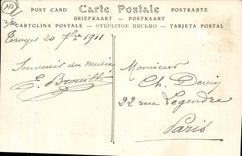 POST CARD Carte Postale POSTKARTE
BRIEFKAART — POSTKAART
CARTOLINA POSTALE — ОТКРЫТОЕ ПИСЬМО — TARJETA POSTAL
Troyes 20 7bre 1911
Souvenir du
Monsieur
Ch.
22 rue Legendre
Paris